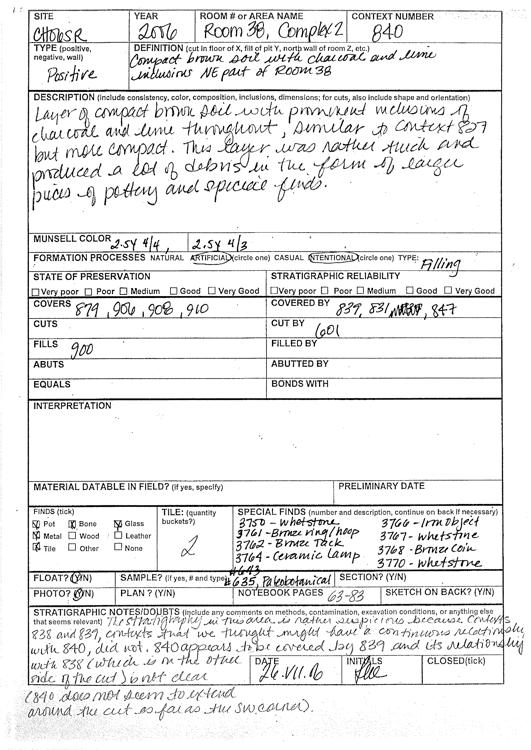 SITE YEAR ROOM # OR AREA NAME CONTEXT NUMBER
CH06SR 2006 Room 38, Complex 2 840
TYPE (positive, negative, wall) DEFINITION (cut in floor of X, fill of pit Y, north wall of room Z, etc.)
Positive Compact brown soil with charcoal and lime
inclusions NE part of Room 38
DESCRIPTION (include consistency, color, composition, inclusions, dimensions; for cuts, also include shape and orientation)
Layer of compact brown soil with prominent inclusions of
charcoal and lime throughout, similar to Context 837
but more compact. This layer was rather thick and
produced a lot of debris in the form of larger
pieces of pottery and speciale finds.
MUNSELL COLOR 2.5Y 4/4, 2.5Y 4/3
FORMATION PROCESSES NATURAL ARTIFICIAL (circle one) CASUAL INTENTIONAL (circle one) TYPE: Filling
STATE OF PRESERVATION STRATIGRAPHIC RELIABILITY
Very poor Poor Medium Good Very Good Very poor Poor Medium Good Very Good
COVERS 879, 906, 908, 910 COVERED BY 839, 831, 847
CUTS CUT BY 601
FILLS 900 FILLED BY
ABUTS ABUTTED BY
EQUALS BONDS WITH
INTERPRETATION
MATERIAL DATABLE IN FIELD? (if yes, specify) PRELIMINARY DATE
FINDS (tick) TILE: (quantity buckets?) SPECIAL FINDS (number and description, continue on back if necessary)
Pot Bone Glass 2 3750 - Whetstone 3766 - Iron Object
Metal Wood Leather 3761 - Bronze ring/hoop 3767 - Whetstone
Tile Other None 3762 - Bronze Tack 3768 - Bronze Coin
3764 - Ceramic Lamp 3770 - Whetstone
FLOAT? (Y/N) SAMPLE? (if yes, # and type) #643 #635, Paleobotanical SECTION? (Y/N)
PHOTO? (Y/N) PLAN? (Y/N) NOTEBOOK PAGES 63-83 SKETCH ON BACK? (Y/N)
STRATIGRAPHIC NOTES/DOUBTS (include any comments on methods, contamination, excavation conditions, or anything else
that seems relevant) The stratigraphy in this area is rather suspicious because Contexts
838 and 839, contexts that we thought might have a continuous relationship
with 840, did not. 840 appears to be covered by 839 and its relationship
with 838 (which is on the other
side of the cut) is not clear
DATE 26.VII.06 INITIALS CLOSED(tick)
(840 does not seem to extend
around the cut as far as the SW corner).